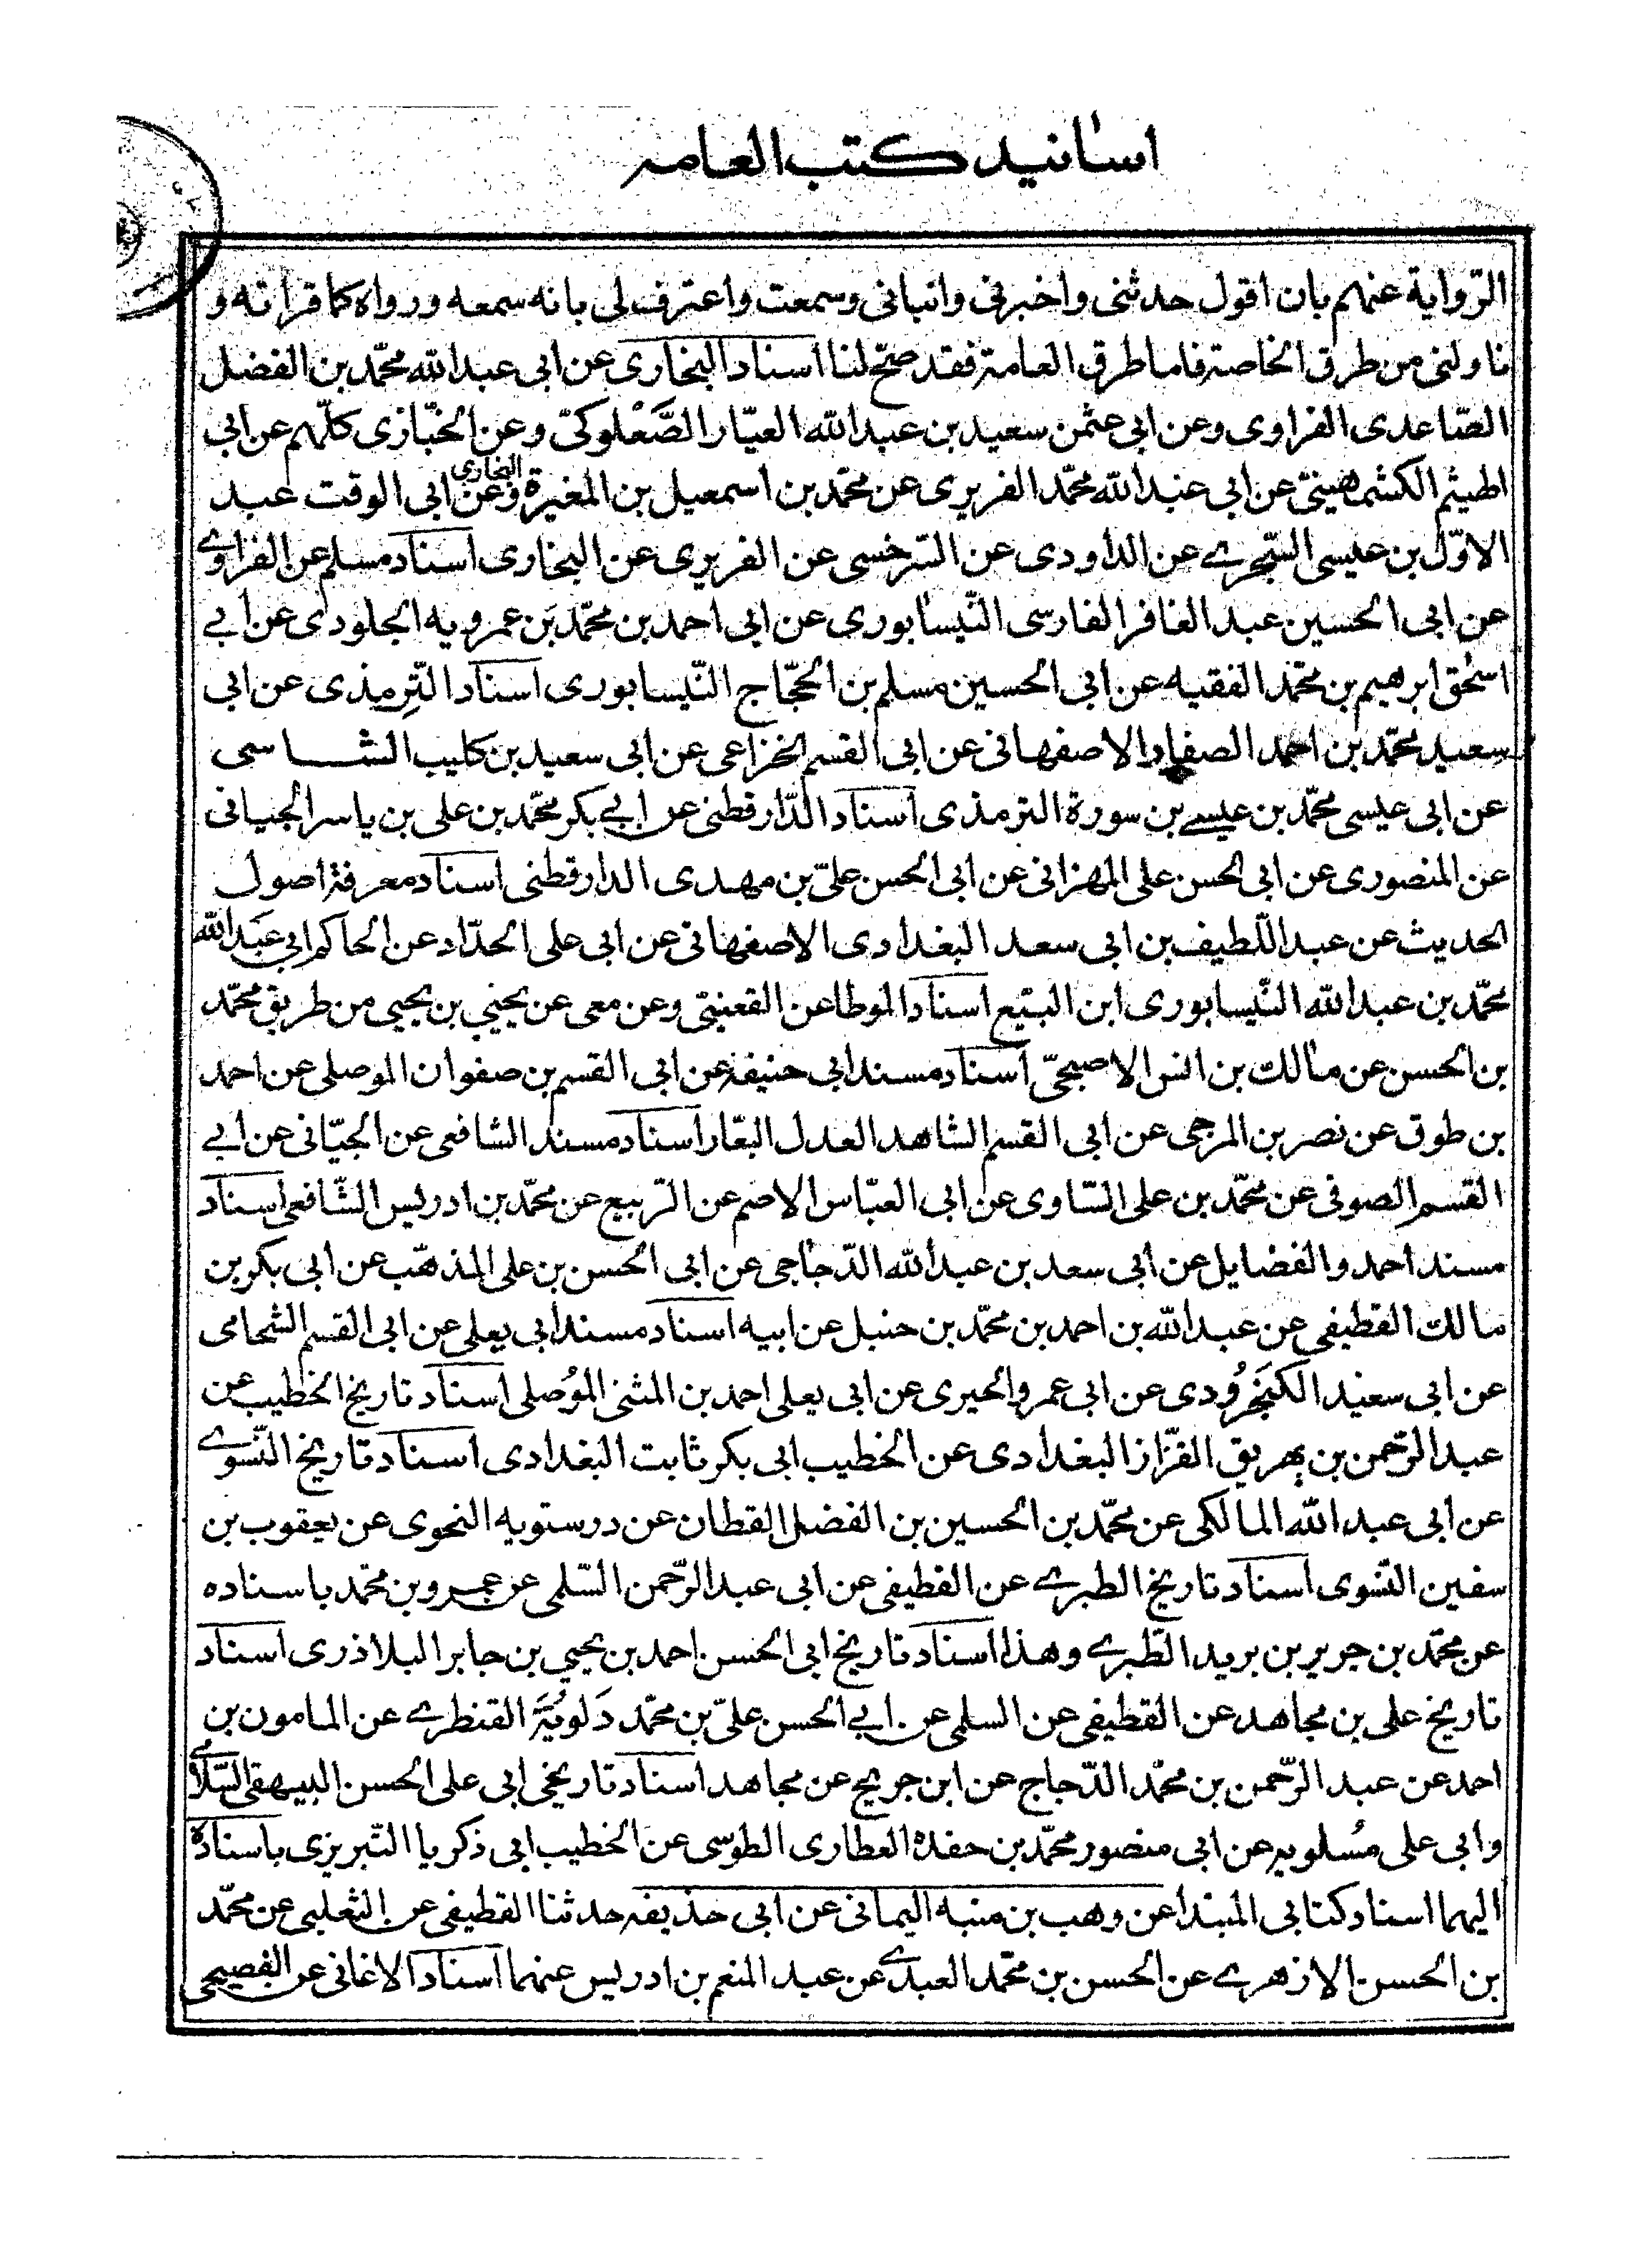 اسانيد كتب العامه
الرّواية عنهم بان اقول حدثنى واخبرنى وانبانى وسمعت واعترف لى بانه سمعه ورواه كما قراته و
ناولنى من طرق الخاصة فاما طرق العامة فقد صحّ لنا اسناد البخارى عن ابى عبد الله محمّد بن الفضل
الصّاعدى الفراوى وعن ابى عثمن سعيد بن عبد الله العيّار الصَّعْلوكىّ وعن الخبّازى كلّهم عن ابى
الهيثم الكشمهينىّ عن ابى عبد الله محمّد الفربرى عن محمّد بن اسمعيل بن المغيرة البخاري وعن ابى الوقت عبد
الاوّل بن عيسى السّجزے عن الداودى عن السّرخسى عن الفربرى عن البخارى اسناد مسلم عن الفراوے
عن ابى الحسين عبد الغافر الفارسى النّيسابورى عن ابى احمد بن محمّد بن عمرويه الجلودى عن ابے
اسحٰق ابرهيم بن محمّد الفقيه عن ابى الحسين مسلم بن الحجّاج النّيسابورى اسناد التِرمذى عن ابى
سعيد محمّد بن احمد الصفار الاصفهانى عن ابى القسم الخزاعى عن ابى سعيد بن كليب الشاسى
عن ابى عيسى محمّد بن عيسے بن سورة الترمذى اسناد الدّارقطنى عن ابے بكر محمّد بن على بن ياسر الجيانى
عن المنصورى عن ابى الحسن على المهزانى عن ابى الحسن علىّ بن مهدى الدارقطنى اسناد معرفة اصول
الحديث عن عبد اللّطيف بن ابى سعد البغدادى الاصفهانى عن ابى على الحدّاد عن الحاكم ابى عبد الله
محمّد بن عبد الله النّيسابورى ابن البيّع اسناد الموطا عن القعنبىّ وعن معى عن يحيى بن يحيى من طريق محمّد
بن الحسن عن مالك بن انس الاصبحىّ اسناد مسند ابى حنيفة عن ابى القسم بن صفوان الموصلى عن احمد
بن طوق عن نصر بن المرجى عن ابى القسم الشاهد العدل البقار اسناد مسند الشافعى عن الجيّانى عن ابے
القسم الصوفى عن محمّد بن على السّاوى عن ابى العبّاس الاصم عن الرّبيع عن محمّد بن ادريس الشّافعى اسناد
مسند احمد والفضايل عن ابى سعد بن عبد الله الدّجاجى عن ابى الحسن بن على المذهّب عن ابى بكر بن
مالك القطيفى عن عبد الله بن احمد بن محمّد بن حنبل عن ابيه اسناد مسند ابى يعلى عن ابى القسم الشحامى
عن ابى سعيد الكَنجَرُودى عن ابى عمرو الحيرى عن ابى يعلى احمد بن المثنى الموُصلى اسناد تاريخ الخطيب عن
عبد الرّحمن بن بهريق القزّاز البغدادى عن الخطيب ابى بكر ثابت البغدادى اسناد تاريخ النّسوے
عن ابى عبد الله المالكى عن محمّد بن الحسين بن الفضل القطان عن درستويه النحوى عن يعقوب بن
سفين النّسوى اسناد تاريخ الطبرے عن القطيفى عن ابى عبد الرّحمن السّلمى عن عمرو بن محمّد باسناده
عن محمّد بن جرير بن بريد الطّبرے وهذا اسناد تاريخ ابى الحسن احمد بن يحيى بن جابر البلاذرى اسناد
تاريخ على بن مجاهد عن القطيفى عن السلمى عن ابے الحسن علىّ بن محمّد دَلويَّه القنطرے عن المامون بن
احمد عن عبد الرّحمن بن محمّد الدّجاج عن ابن جريج عن مجاهد اسناد تاريخى ابى على الحسن البيهقى السّلامے
وابى على مُسلويه عن ابى منصور محمّد بن حفدة العطارى الطوسى عن الخطيب ابى ذكريا التّبريزى باسناده
اليهما اسناد كتابى المبتدا عن وهب بن منبه اليمانى عن ابى حذيفه حدثنا القطيفى عن الثعلبى عن محمّد
بن الحسن الازهرے عن الحسن بن محمّد العبدے عن عبد المنعم بن ادريس عنهما اسناد الاغانى عن الفصيحى